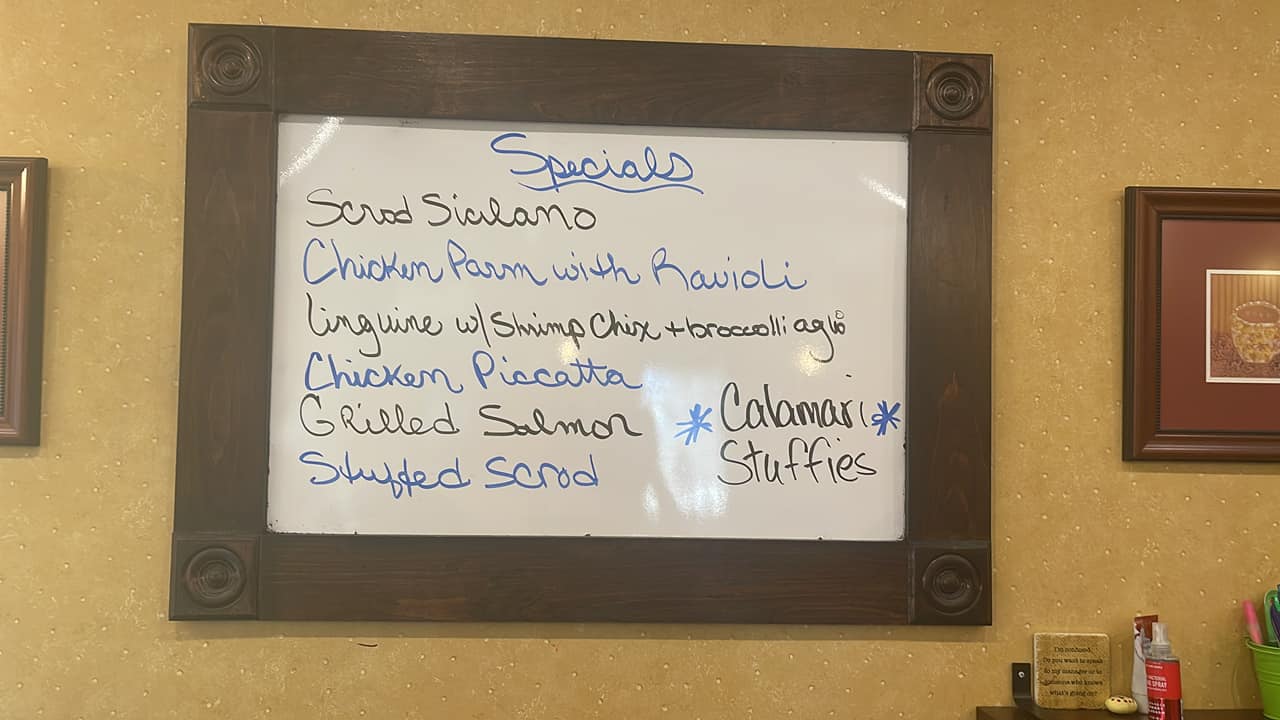 Specials
Scrod Sicilano
Chicken Parm with Ravioli
Linguine w/ Shrimp Chix + broccolli aglio
Chicken Piccatta
Grilled Salmon
Stuffed Scrod
* Calamari *
Stuffies
I'm confused.
Do you want to speak
to my manager or to
someone who knows
what's going on?
SPRAY